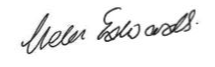 Helen Edwards.